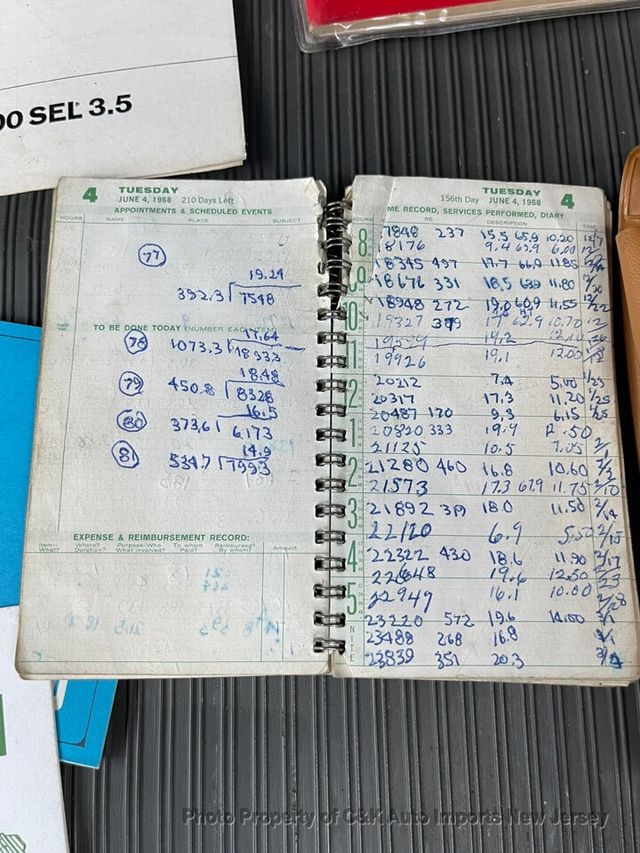 00 SEL 3.5
4 TUESDAY
JUNE 4, 1968 210 Days Left
APPOINTMENTS & SCHEDULED EVENTS
HOURS NAME PLACE SUBJECT
77
19.24
392.3 7548
TO BE DONE TODAY (NUMBER EACH ITEM)
17.64
78 1073.3 18933
18.48
79 450.8 8328
16.5
80 373.6 6173
14.9
81 534.7 7993
EXPENSE & REIMBURSEMENT RECORD:
Item—What? Where? Duration? Purpose-Who What involved? To whom Paid? Reimbursed? By whom? Amount
TUESDAY 4
156th Day JUNE 4, 1968
ME RECORD, SERVICES PERFORMED, DIARY
HOURS RE: DESCRIPTION TIME
8 17848 237 15.5 65.9 10.20
18176 9.4 63.9 6.00
18345 497 17.7 66.9 11.85
9 18676 331 18.5 63.9 11.80
18948 272 19.0 60.9 11.55 12/22
10 19327 379 17 62.9 10.70
11 19579 19.2 12.10
19926 19.1 12.00
20212 7.4 5.00 1/23
12 20317 17.3 11.20 1/25
20487 170 9.3 6.15 1/25
1 20820 333 19.9 12.50
21125 10.5 7.05 2/1
2 21280 460 16.8 10.60 2/3
21573 17.3 67.9 11.75 2/10
3 21892 319 18.0 11.50 2/14
22120 6.9 5.50 2/15
4 22322 430 18.6 11.90 2/17
22648 19.6 12.50 2/23
5 22949 16.1 10.00 2/28
23220 572 19.6 14.00 3/1
NITE 23488 268 16.8 3/1
23839 351 20.3 3/4
Photo Property of C&K Auto Imports New Jersey